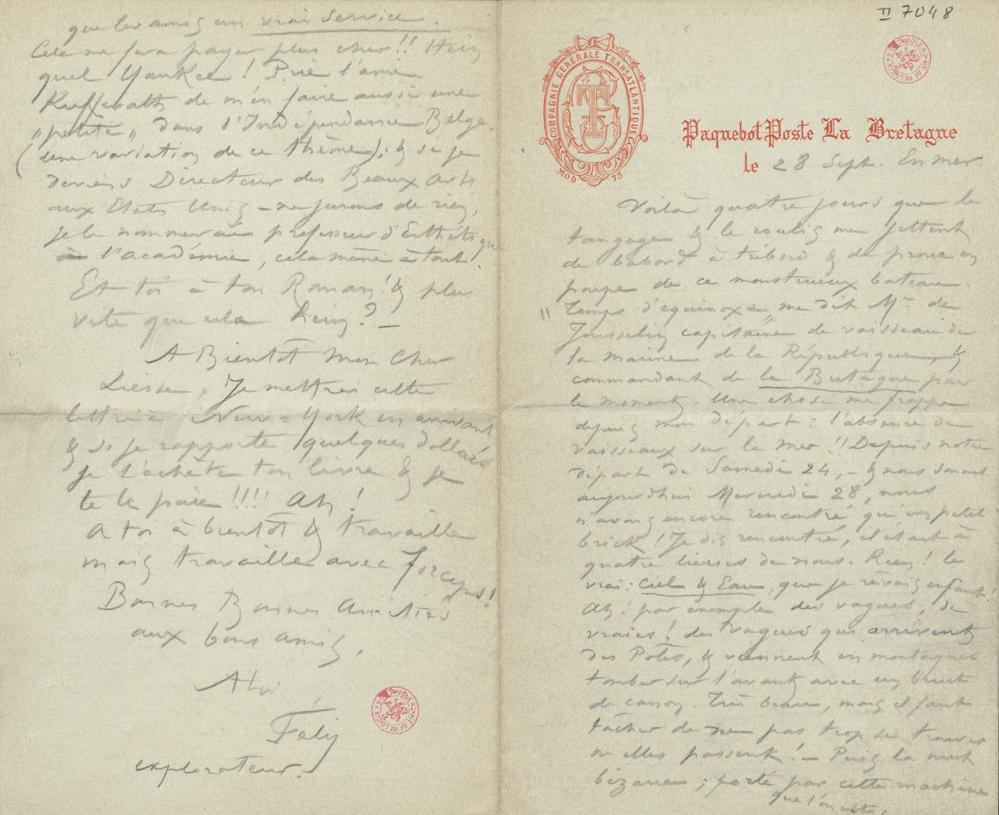 II 7048
COMPAGNIE GENERALE TRANSATLANTIQUE
MOD 73
Paquebot Poste La Bretagne
le 28 Sept. En mer
Voilà quatre jours que le
tangage & le roulis me jettent
de babord à tribord & de proue en
poupe de ce monstrueux bateau.
"Temps d'équinoxe" me dit Mr. de
Jousselin capitaine de vaisseau de
la marine de la République &
commandant de la Bretagne pour
le moment. Une chose me frappe
depuis mon départ : l'absence de
vaisseaux sur la mer !! Depuis notre
départ de Samedi 24, - & nous sommes
aujourdhui Mercredi 28, nous
n'avons encore rencontré qu'un petit
brick ! Je dis rencontré, il était à
quatre lieues de nous. Rien ! le
vrai : Ciel & Eau, que je rêvais enfant !
Ah ! par exemple des vagues, de
vraies ! des vagues qui arrivent
des Pôles, & viennent en montagnes
tomber sur l'avant avec un bruit
de canon. Très beau, mais il faut
tâcher de ne pas trop se trouver
où elles passent ! - Puis la nuit
bizarre ; porté par cette machine
que l'on
que les amis un vrai service.
Cela me fera payer plus cher !! Hein
quel Yankee ! Prie l'ami
Kufferath de m'en faire aussi une
"petite" dans l'Indépendance Belge.
(une variation de ce thème), & si je
deviens Directeur des Beaux Arts
aux Etats Unis - ne jurons de rien,
je le nommerai professeur d'Esthétique
à l'académie, cela mène à tout !
Et toi à ton Roman ! & plus
vite que cela hein ? -
A Bientôt mon Cher
Liesse, Je mettrai cette
lettre à New-York en arrivant
& si je rapporte quelques dollars
je t'achète ton livre & je
te le paie !!!! Ah !
A toi à bientôt & travaille
mais travaille avec forceps !
Bonnes Bonnes Amitiés
aux bons amis,
A toi
Félix
explorateur.